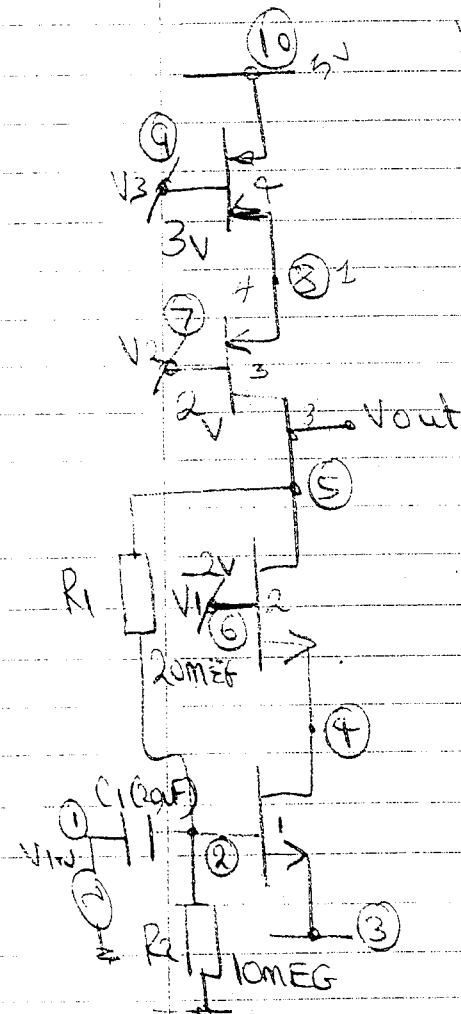 10
5V
9
V3
4
3V
4
8
1
7
V2
3
2V
3
Vout
5
R1
2V
V1
2
6
20MEG
4
C1(20uF)
1
1
2
3
R2
10MEG